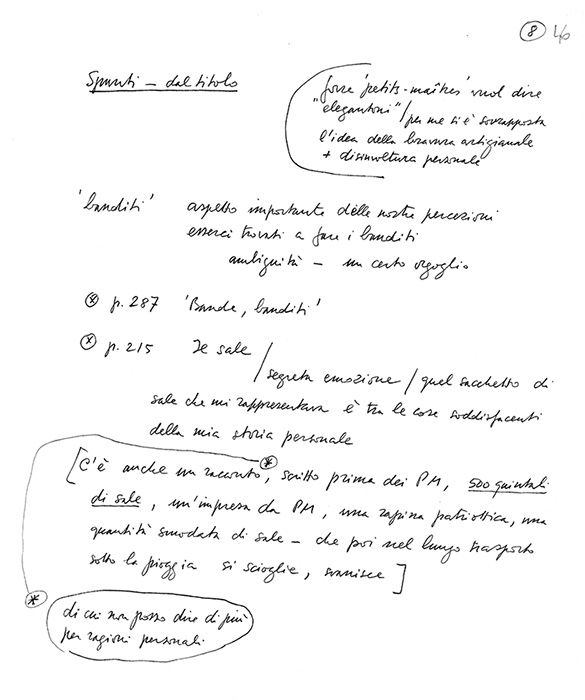 8 46
Spunti – dal titolo
forse 'petits-maîtres' vuol dire
"elegantoni" / per me si è sovrapposta
l'idea della bravura artigianale
+ disinvoltura personale
'banditi' aspetto importante delle nostre percezioni
esserci trovati a fare i banditi
ambiguità – un certo orgoglio
p. 287 'Bande, banditi'
p. 215 Il sale
/segreta emozione / quel sacchetto di
sale che mi rappresentava è tra le cose soddisfacenti
della mia storia personale
[C'è anche un racconto*, scritto prima dei PM, 500 quintali
di sale, un'impresa da PM, una rapina patriottica, una
quantità smodata di sale – che poi nel lungo trasporto
sotto la pioggia si scioglie, svanisce]
* di cui non posso dire di più
per ragioni personali